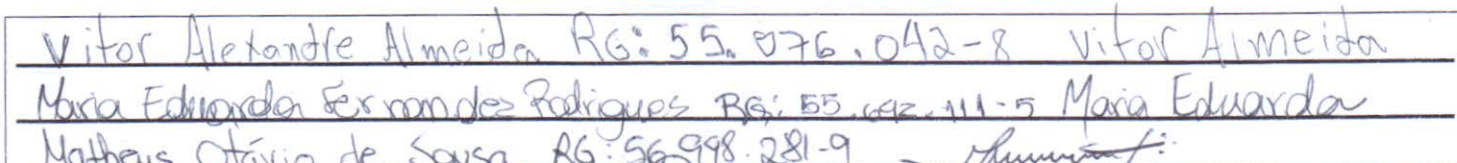 Vitor Alexandre Almeida RG: 55.076.042-8 Vitor Almeida
Maria Eduarda Fernandez Rodrigues RG: 55.692.111-5 Maria Eduarda
Matheus Otávio de Sousa RG: 56.998.281-9